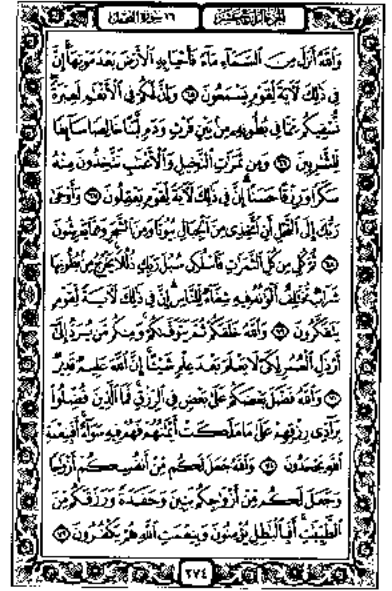 الجزء الرابع عشر ١٦ سورة النحل
وَٱللَّهُ أَنزَلَ مِنَ ٱلسَّمَآءِ مَآءً فَأَحْيَا بِهِ ٱلْأَرْضَ بَعْدَ مَوْتِهَآ إِنَّ
فِى ذَٰلِكَ لَءَايَةً لِّقَوْمٍ يَسْمَعُونَ ٦٥ وَإِنَّ لَكُمْ فِى ٱلْأَنْعَٰمِ لَعِبْرَةً
نُّسْقِيكُم مِّمَّا فِى بُطُونِهِۦ مِنۢ بَيْنِ فَرْثٍ وَدَمٍ لَّبَنًا خَالِصًا سَآئِغًا
لِّلشَّٰرِبِينَ ٦٦ وَمِن ثَمَرَٰتِ ٱلنَّخِيلِ وَٱلْأَعْنَٰبِ تَتَّخِذُونَ مِنْهُ
سَكَرًا وَرِزْقًا حَسَنًا إِنَّ فِى ذَٰلِكَ لَءَايَةً لِّقَوْمٍ يَعْقِلُونَ ٦٧ وَأَوْحَىٰ
رَبُّكَ إِلَى ٱلنَّحْلِ أَنِ ٱتَّخِذِى مِنَ ٱلْجِبَالِ بُيُوتًا وَمِنَ ٱلشَّجَرِ وَمِمَّا يَعْرِشُونَ
٦٨ ثُمَّ كُلِى مِن كُلِّ ٱلثَّمَرَٰتِ فَٱسْلُكِى سُبُلَ رَبِّكِ ذُلُلًا يَخْرُجُ مِنۢ بُطُونِهَا
شَرَابٌ مُّخْتَلِفٌ أَلْوَٰنُهُۥ فِيهِ شِفَآءٌ لِّلنَّاسِ إِنَّ فِى ذَٰلِكَ لَءَايَةً لِّقَوْمٍ
يَتَفَكَّرُونَ ٦٩ وَٱللَّهُ خَلَقَكُمْ ثُمَّ يَتَوَفَّىٰكُمْ وَمِنكُم مَّن يُرَدُّ إِلَىٰٓ
أَرْذَلِ ٱلْعُمُرِ لِكَىْ لَا يَعْلَمَ بَعْدَ عِلْمٍ شَيْـًٔا إِنَّ ٱللَّهَ عَلِيمٌ قَدِيرٌ
٧٠ وَٱللَّهُ فَضَّلَ بَعْضَكُمْ عَلَىٰ بَعْضٍ فِى ٱلرِّزْقِ فَمَا ٱلَّذِينَ فُضِّلُوا۟
بِرَآدِّى رِزْقِهِمْ عَلَىٰ مَا مَلَكَتْ أَيْمَٰنُهُمْ فَهُمْ فِيهِ سَوَآءٌ أَفَبِنِعْمَةِ
ٱللَّهِ يَجْحَدُونَ ٧١ وَٱللَّهُ جَعَلَ لَكُم مِّنْ أَنفُسِكُمْ أَزْوَٰجًا
وَجَعَلَ لَكُم مِّنْ أَزْوَٰجِكُم بَنِينَ وَحَفَدَةً وَرَزَقَكُم مِّنَ
ٱلطَّيِّبَٰتِ أَفَبِٱلْبَٰطِلِ يُؤْمِنُونَ وَبِنِعْمَتِ ٱللَّهِ هُمْ يَكْفُرُونَ ٧٢
٢٧٤